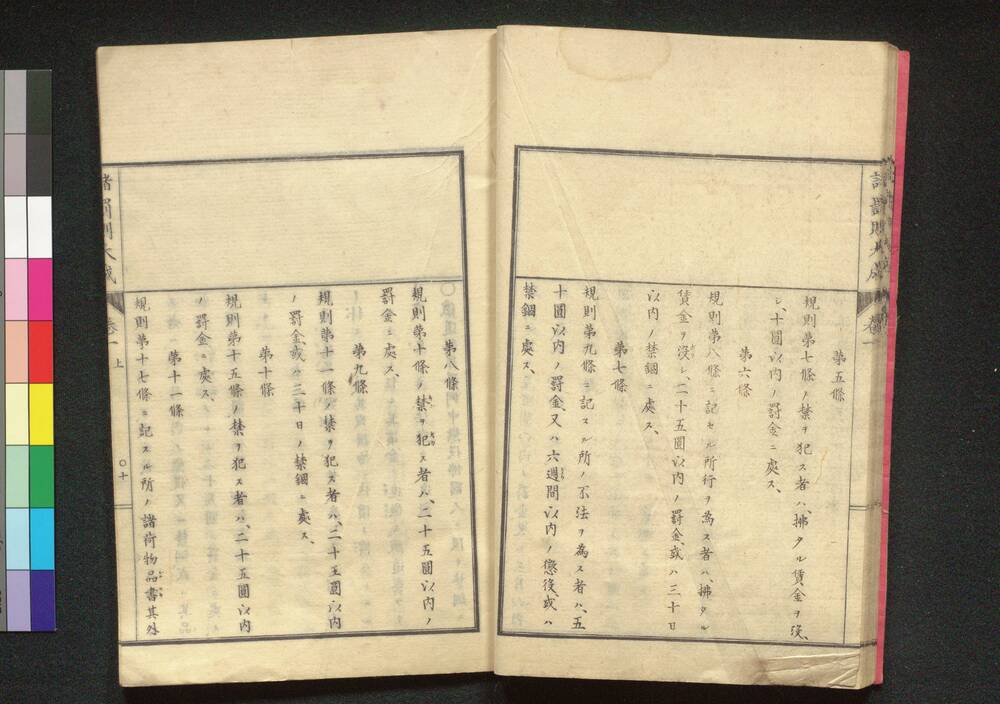 第五條
規則第七條ノ禁ヲ犯ス者ハ、拂タル賃金ヲ沒
シ、十圓以内ノ罰金ニ處ス、
第六條
規則第八條ニ記セル所行ヲ爲ス者ハ、拂タル
賃金ヲ沒シ、二十五圓以内ノ罰金、或ハ三十日
以内ノ禁錮ニ處ス、
第七條
規則第九條ニ記スル所ノ不法ヲ爲ス者ハ、五
十圓以内ノ罰金、又ハ六週間以内ノ懲役、或ハ
禁錮ニ處ス、
諸罰則大成
卷一
第八條
規則第十條ノ禁ヲ犯ス者ハ、二十五圓以内ノ
罰金ニ處ス、
第九條
規則第十一條ノ禁ヲ犯ス者ハ、二十五圓以内
ノ罰金或ハ三十日ノ禁錮ニ處ス、
第十條
規則第十五條ノ禁ヲ犯ス者ハ、二十五圓以内
ノ罰金ニ處ス、
第十一條
規則第十七條ニ記スル所ノ諸荷物品書其外
諸罰則大成
卷一
上
〇十